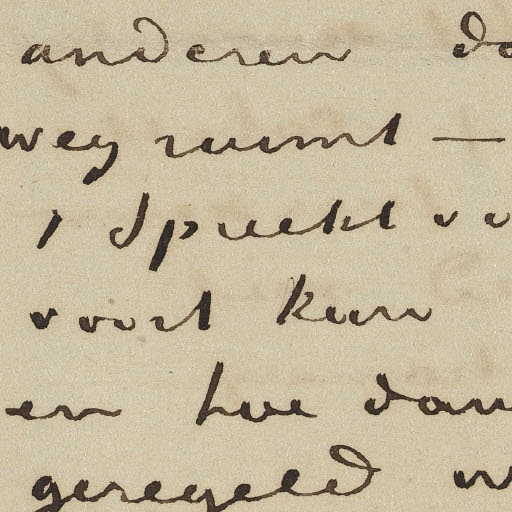 anderen do
weg ruimt —
, spreekt vo
voort kan
en hoe dan
geregeld w